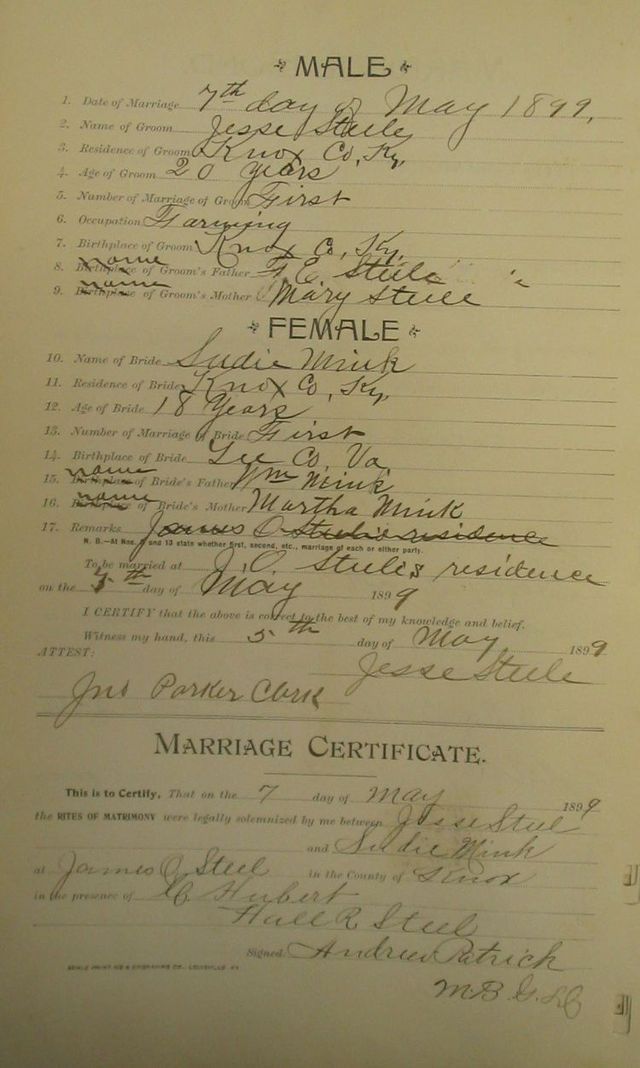 MALE
1. Date of Marriage 7th day of May 1899,
2. Name of Groom Jesse Steele
3. Residence of Groom Knox Co, Ky,
4. Age of Groom 20 years
5. Number of Marriage of Groom First
6. Occupation Farming
7. Birthplace of Groom Knox Co, Ky,
8. Birthplace name of Groom's Father F. E. Steele
9. Birthplace name of Groom's Mother Mary Steele
FEMALE
10. Name of Bride Sudie Mink
11. Residence of Bride Knox Co, Ky,
12. Age of Bride 18 Years
13. Number of Marriage of Bride First
14. Birthplace of Bride Lee Co, Va
15. Birthplace name of Bride's Father Wm Mink
16. Birthplace name of Bride's Mother Martha Mink
17. Remarks James O Steele's residence
N. B.—At Nos. 5 and 13 state whether first, second, etc., marriage of each or either party.
To be married at J. O. Steele's residence
on the day of May 1899
I CERTIFY that the above is correct to the best of my knowledge and belief.
Witness my hand, this 5th day of May 1899
ATTEST: Jesse Steele
Jno Parker Clerk
MARRIAGE CERTIFICATE.
This is to Certify, That on the 7 day of May 1899
the RITES OF MATRIMONY were legally solemnized by me between Jesse Steel
and Sudie Mink
at James O Steel in the County of Knox
in the presence of Hubert
Hull R Steel
Signed, Andrew Patrick
M. B. G.